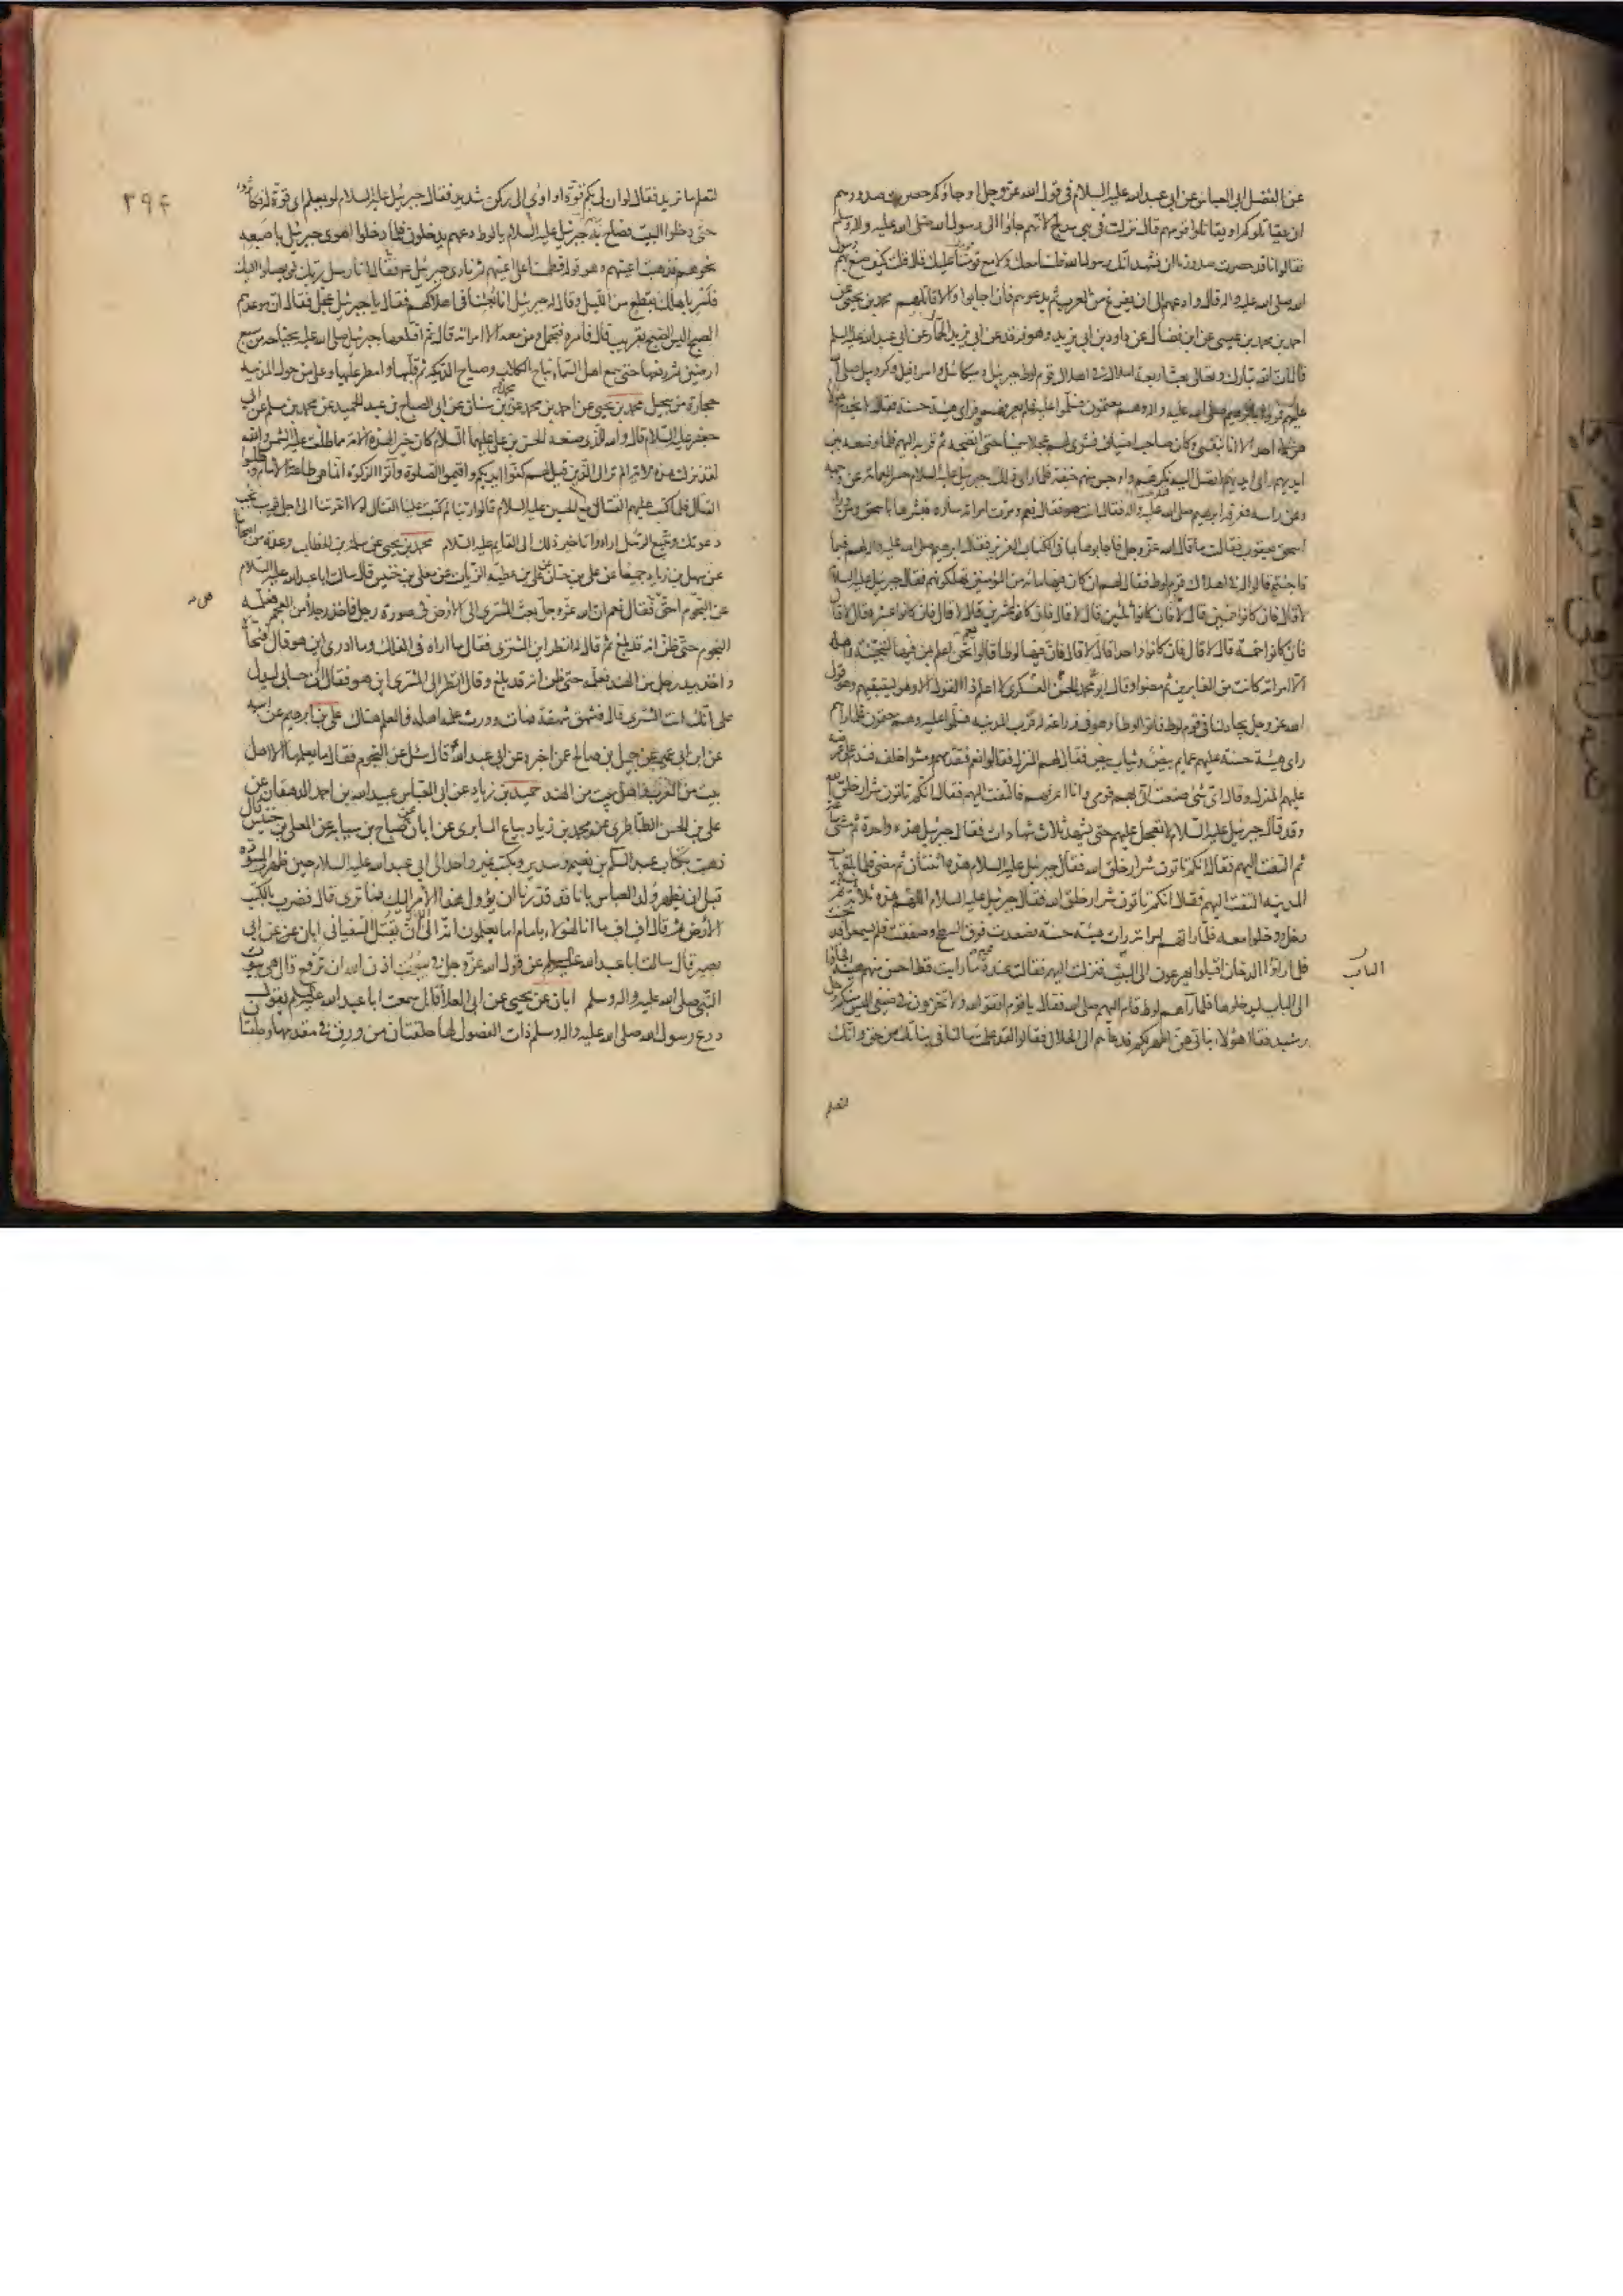 عن الفضل ابى العباس عن ابى عبد الله عليه السلام فى قول الله عز وجل او جاؤكم حصرت صدورهم
ان يقاتلوكم او يقاتلوا قومهم قال نزلت فى بنى مدلج لانهم جاؤا الى رسول الله صلى الله عليه واله وسلم
فقالوا انا قد حصرت صدورنا ان نشهد انك رسول الله فلسنا معك ولا مع قومنا عليك قال قلت كيف صنع بهم رسول
الله صلى الله عليه واله قال وادعهم الى ان يفرغ من العرب ثم يدعوهم فان اجابوا والا قاتلهم محمد بن يحيى عن
احمد بن محمد بن عيسى عن ابن فضال عن داود بن ابى يزيد وهو فرقد عن ابى يزيد الحمار عن ابى عبد الله عليه السلم
قال ان الله تبارك وتعالى بعث اربعة املاك فى اهلاك قوم لوط جبرئيل وميكائيل واسرافيل وكروبيل صلى الله
عليهم فمروا بابرهيم صلى الله عليه واله وهم معتمون فسلموا عليه فلم يعرفهم وراى هيئة حسنة فقال لا يخدم
هؤلاء احد الا انا بنفسى وكان صاحب اضياف فشوى لهم عجلا سمينا حتى انضجه ثم قربه اليهم فلما وضعه بين
ايديهم راى ايديهم لا تصل اليه نكرهم واوجس منهم خيفة فلما راى ذلك جبرئيل عليه السلام حسر العمامة عن وجهه
وعن راسه فعرفه ابرهيم صلى الله عليه واله فقال انت هو فقال نعم ومرت امراته سارة فبشرها باسحق ومن وراء
اسحق يعقوب فقالت ما قال الله عز وجل فاجابوها بما فى الكتاب العزيز فقال ابرهيم صلى الله عليه واله لهم فيما
ذا جئتم قالوا له فى اهلاك قوم لوط فقال لهم ان كان فيها مائة من المؤمنين تهلكونهم فقال جبرئيل عليه السلام
لا قال فان كانوا خمسين قال لا قال فان كانوا ثلثين قال لا قال فان كانوا عشرين قال لا قال فان كانوا عشرة قال لا قال
فان كانوا خمسة قال لا قال فان كانوا واحدا قال لا قال فان فيها لوطا قالوا نحن اعلم بمن فيها لننجينه واهله
الا امراته كانت من الغابرين ثم مضوا وقال ابو محمد الحسن العسكرى لا اعلم ذا القول الا وهو يستبقيهم وهو قول
الله عز وجل يجادلنا فى قوم لوط فاتوا لوطا وهو فى زراعة له قرب المدينه فسلموا عليه وهم معتمون فلما راهم
راى هيئة حسنة عليهم عمايم بيض وثياب بيض فقال لهم المنزل فقالوا نعم فتقدمهم ومشوا خلفه فندم على عرضه
عليهم المنزل وقال اى شئ صنعت اتى بهم قومى وانا اعرفهم فالتفت اليهم فقال انكم تاتون شرار خلق الله
وقد قال جبرئيل عليه السلام لا نعجل عليهم حتى يشهد ثلاث شهادات فقال جبرئيل هذه واحدة ثم مشى ساعة
ثم التفت اليهم فقال انكم تاتون شرار خلق الله فقال جبرئيل عليه السلام هذه اثنتان ثم مضى فلما بلغ باب
المدينه التفت اليهم فقال انكم تاتون شرار خلق الله فقال جبرئيل عليه السلام هذه ثلاثة ثم
دخل ودخلوا معه فلما راتهم امراته رات هيئة حسنة فصعدت فوق السطح وصفقت فلم يسمعوا فدخنت
فلما راوا الدخان اقبلوا يهرعون الى الباب فنزلت اليهم فقالت عنده قوم ما رايت قط احسن منهم هيئة فجاؤا
الى الباب ليدخلوها فلما راهم لوط قام اليهم صلى الله فقال يا قوم اتقوا الله ولا تخزون فى ضيفى اليس منكم رجل
رشيد فقال هؤلاء بناتى هن اطهر لكم فدعاهم الى الحلال فقالوا لقد علمت ما لنا فى بناتك من حق وانك
الباب
لتعلم
٣٩۴
لتعلم ما نريد فقال لو ان لى بكم قوة او اوى الى ركن شديد فقال جبرئيل عليه السلام لو يعلم اى قوة له فكاثروه
حتى دخلوا البيت فصاح به جبرئيل عليه السلام يا لوط دعهم يدخلون فلما دخلوا اهوى جبرئيل باصبعه
نحوهم فذهبت اعينهم وهو قوله فطمسنا على اعينهم ثم نادى جبرئيل فقال انا رسل ربك لن يصلوا اليك
فاسر باهلك بقطع من الليل وقال له جبرئيل انا بعثنا فى اهلاكهم فقال يا جبرئيل عجل فقال ان موعدهم
الصبح اليس الصبح بقريب قال فامره فتحمل ومن معه الا امراته قال ثم اقتلعها جبرئيل صلى الله عليه بجناحه من سبع
ارضين ثم رفعها حتى سمع اهل السماء نباح الكلاب وصياح الديكة ثم قلبها وامطر عليها وعلى من حول المدينه
حجارة من سجيل محمد بن يحيى عن احمد بن محمد عن محمد بن سنان عن ابى الصباح بن عبد الحميد عن محمد بن مسلم عن ابى
جعفر عليه السلام قال والله الذى صنعه الحسن بن على عليهما السلام كان خيرا لهذه الامة مما طلعت عليه الشمس والله
لقد نزلت هذه الاية الم تر الى الذين قيل لهم كفوا ايديكم واقيموا الصلوة واتوا الزكوة انما هى طاعة الامام وطلبوا
القتال فلما كتب عليهم القتال مع الحسين عليه السلام قالوا ربنا لم كتبت علينا القتال لولا اخرتنا الى اجل قريب نجب
دعوتك ونتبع الرسل ارادوا تاخير ذلك الى القايم عليه السلام محمد بن يحيى عن سلمة بن الخطاب وعدة من اصحابنا
عن سهل بن زياد جميعا عن على بن حسان عن على بن عطية الزيات عن معلى بن خنيس قال سالت ابا عبد الله عليه السلام
عن النجوم احق فقال نعم ان الله عز وجل بعث المشترى الى الارض فى صورة رجل فاخذ رجلا من العجم فعلمه
النجوم حتى ظن انه قد بلغ ثم قال له انظر اين المشترى فقال ما اراه فى الفلك وما ادرى اين هو قال فنحاه
واخذ بيد رجل من الهند فعلمه حتى ظن انه قد بلغ وقال انظر الى المشترى اين هو فقال ان حسابى ليدل
على انك انت المشترى قال فشهق شهقة فمات وورث علمه اهله فالعلم هناك على بن ابرهيم عن ابيه
عن ابن ابى عمير عن جميل بن صالح عمن اخبره عن ابى عبد الله قال سئل عن النجوم فقال ما يعلمها الا اهل
بيت من العرب واهل بيت من الهند حميد بن زياد عن ابى العباس عبيد الله بن احمد الدهقان عن
على بن الحسن الطاطرى عن محمد بن زياد بياع السابرى عن ابان عن صباح بن سيابه عن المعلى بن خنيس قال
ذهبت بكتاب عبد السلم بن نعيم وسدير وكتب غير واحد الى ابى عبد الله عليه السلام حين ظهر المسودة
قبل ان يظهر ولد العباس بانا قد قدرنا ان يؤول هذا الامر اليك فما ترى قال فضرب بالكتب
الارض ثم قال اف اف ما انا لهؤلاء بامام اما يعلمون انه انما يقتل السفيانى ابان عن ابى
بصير قال سالت ابا عبد الله عليه السلم عن قول الله عز وجل فى بيوت اذن الله ان ترفع قال هى بيوت
النبى صلى الله عليه واله وسلم ابان عن يحيى عن ابى العلا قال سمعت ابا عبد الله عليه السلم يقول
درع رسول الله صلى الله عليه واله وسلم ذات الفضول لها حلقتان من ورق فى مقدمها وحلقتا